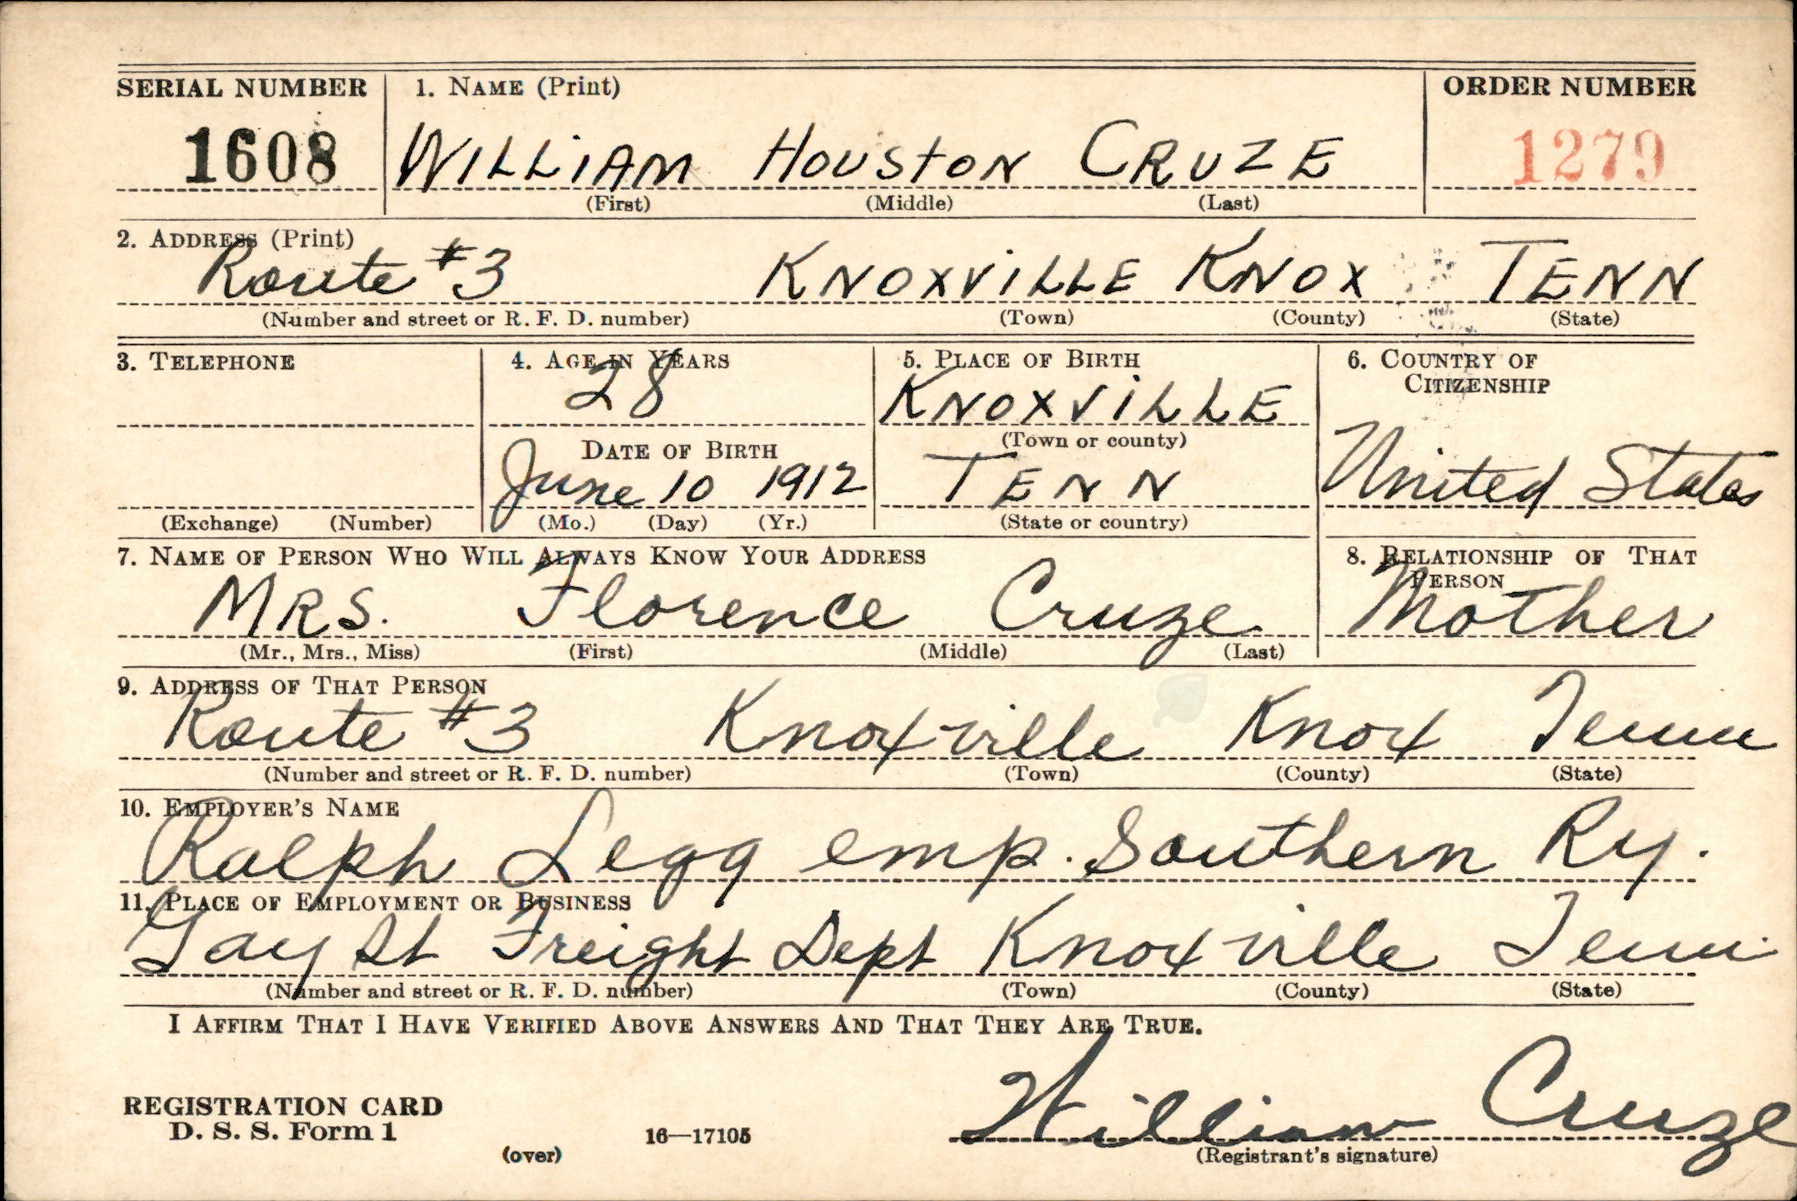 SERIAL NUMBER 1. NAME (Print) ORDER NUMBER
1608 WILLIAM HOUSTON CRUZE 1279
(First) (Middle) (Last)
2. ADDRESS (Print)
Route #3 KNOXVILLE KNOX TENN
(Number and street or R. F. D. number) (Town) (County) (State)
3. TELEPHONE 4. AGE IN YEARS 5. PLACE OF BIRTH 6. COUNTRY OF
CITIZENSHIP
28 KNOXVILLE
(Town or county)
DATE OF BIRTH
June 10 1912 TENN United States
(Exchange) (Number) (Mo.) (Day) (Yr.) (State or country)
7. NAME OF PERSON WHO WILL ALWAYS KNOW YOUR ADDRESS 8. RELATIONSHIP OF THAT
PERSON
MRS. Florence Cruze Mother
(Mr., Mrs., Miss) (First) (Middle) (Last)
9. ADDRESS OF THAT PERSON
Route #3 Knoxville Knox Tenn
(Number and street or R. F. D. number) (Town) (County) (State)
10. EMPLOYER'S NAME
Ralph Legg emp. Southern Ry.
11. PLACE OF EMPLOYMENT OR BUSINESS
Gay St Freight Dept Knoxville Tenn.
(Number and street or R. F. D. number) (Town) (County) (State)
I AFFIRM THAT I HAVE VERIFIED ABOVE ANSWERS AND THAT THEY ARE TRUE.
REGISTRATION CARD
D. S. S. Form 1
William Cruze
(over) 16—17105 (Registrant's signature)